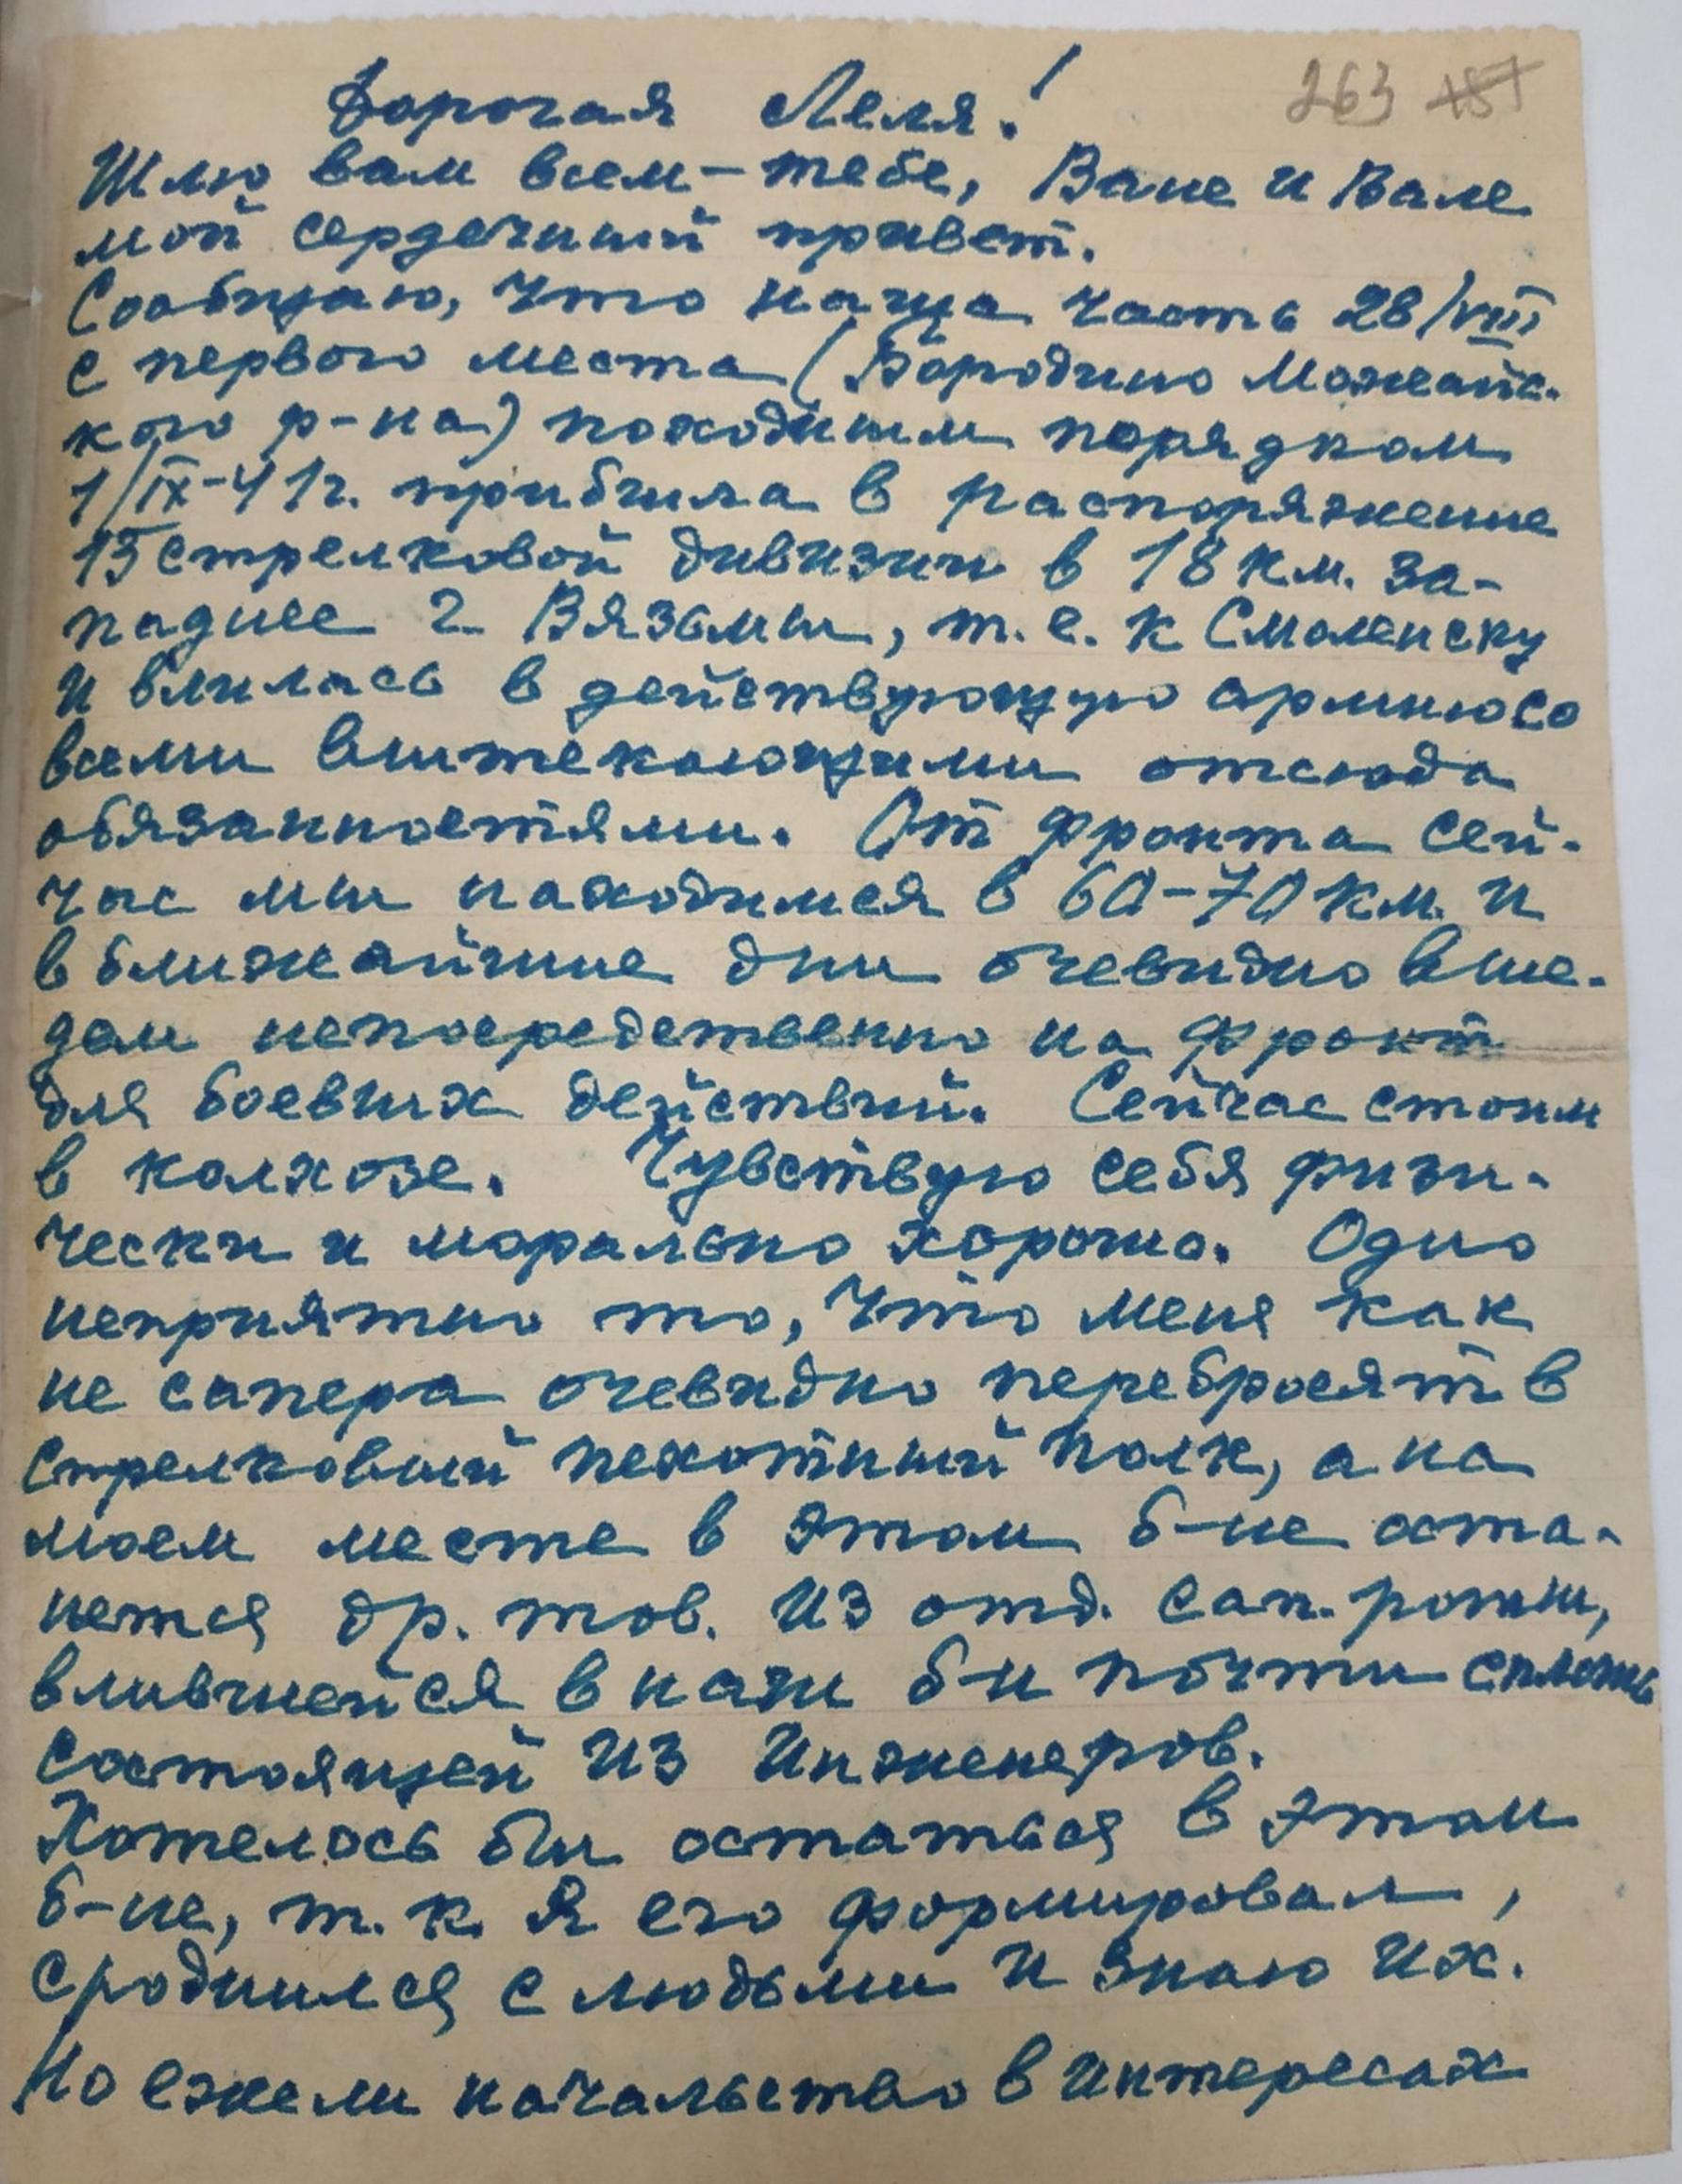 263 157
Дорогая Леля!
Шлю вам всем - тебе, Ване и Вале
мой сердечный привет.
Сообщаю, что наша часть 28/VIII
с первого места (Бородино Можайс-
кого р-на) походным порядком
1/IX-41г. прибыла в распоряжение
15 стрелковой дивизии в 18 км. за-
паднее г. Вязьмы, т.е. к Смоленску
и влилась в действующую армию со
всеми вытекающими отсюда
обязанностями. От фронта сей-
час мы находимся в 60-70 км. и
в ближайшие дни очевидно вые-
дем непосредственно на фронт
для боевых действий. Сейчас стоим
в колхозе. Чувствую себя физи-
чески и морально хорошо. Одно
неприятно то, что меня как
не сапера очевидно перебросят в
стрелковый пехотный полк, а на
моем месте в этом б-не оста-
нется др. тов. из отд. сап. роты,
влившейся в наш б-н почти сплошь
состоящей из инженеров.
Хотелось бы остаться в этом
б-не, т.к. я его формировал,
сроднился с людьми и знаю их.
Но ежели начальство в интересах